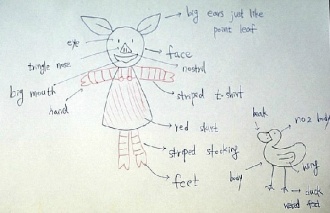 big ears just like
point leaf
eye
face
tringle nose
nostril
big mouth
hand
striped t-shirt
red skirt
striped stocking
feet
beak
no2 body
body
wing
duck
feet